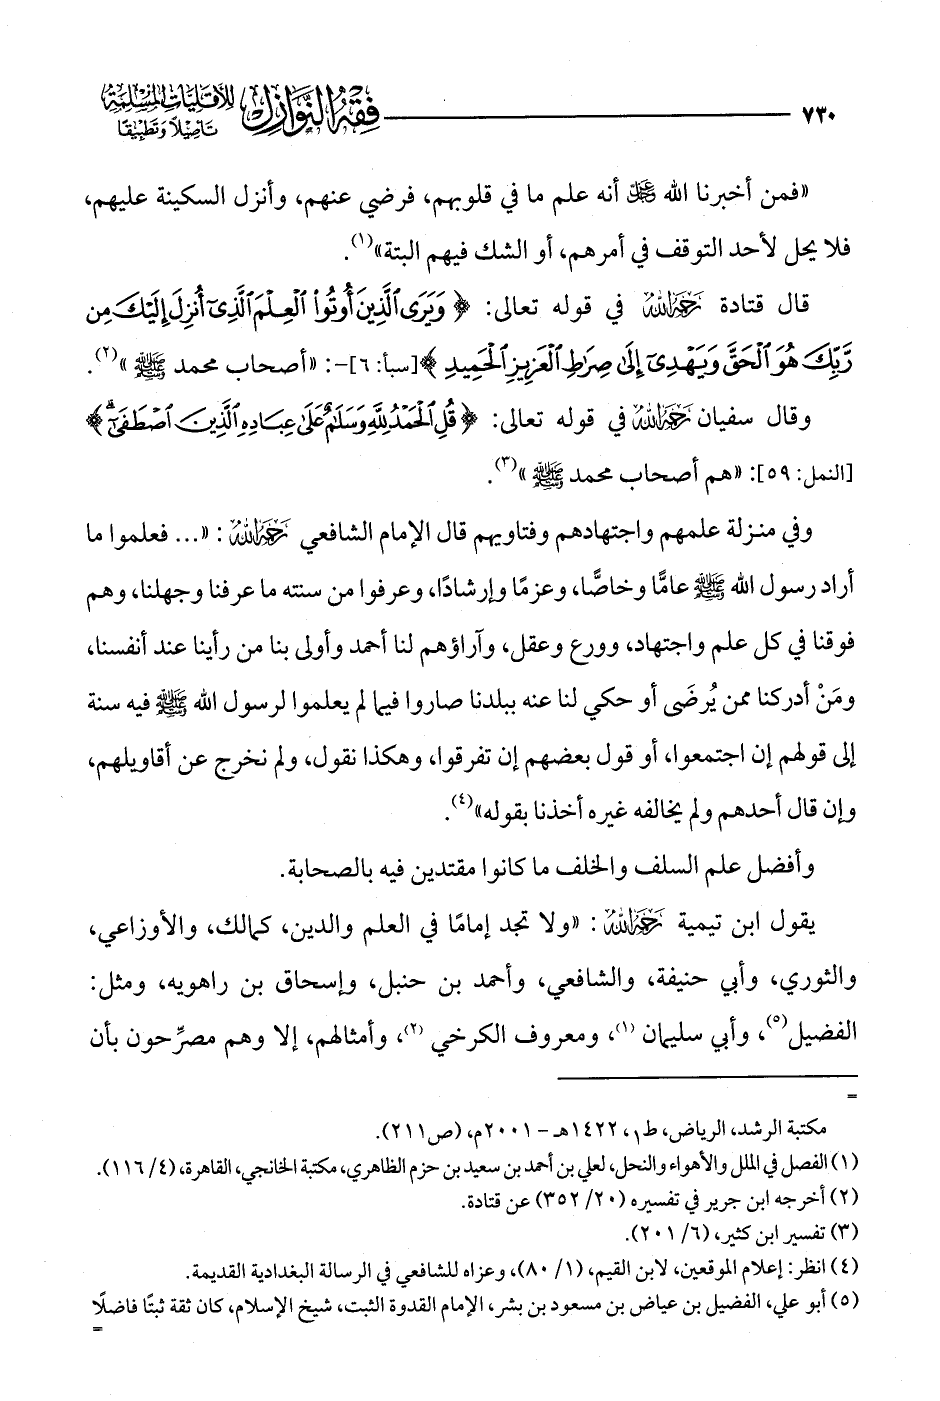 ٧٣٠
فقه النوازل للأقليات المسلمة
تأصيلًا وتطبيقًا
«فمن أخبرنا الله ﷻ أنه علم ما في قلوبهم، فرضي عنهم، وأنزل السكينة عليهم،
فلا يحل لأحد التوقف في أمرهم، أو الشك فيهم البتة»(١).
قال قتادة رَحِمَهُ اللَّهُ في قوله تعالى: ﴿وَيَرَى الَّذِينَ أُوتُوا الْعِلْمَ الَّذِي أُنزِلَ إِلَيْكَ مِن
رَّبِّكَ هُوَ الْحَقَّ وَيَهْدِي إِلَى صِرَاطِ الْعَزِيزِ الْحَمِيدِ﴾[سبأ: ٦]-: «أصحاب محمد ﷺ»(٢).
وقال سفيان رَحِمَهُ اللَّهُ في قوله تعالى: ﴿قُلِ الْحَمْدُ لِلَّهِ وَسَلَامٌ عَلَى عِبَادِهِ الَّذِينَ اصْطَفَىٰ﴾
[النمل: ٥٩]: «هم أصحاب محمد ﷺ»(٣).
وفي منزلة علمهم واجتهادهم وفتاويهم قال الإمام الشافعي رَحِمَهُ اللَّهُ: «... فعلموا ما
أراد رسول الله ﷺ عامًّا وخاصًّا، وعزمًا وإرشادًا، وعرفوا من سنته ما عرفنا وجهلنا، وهم
فوقنا في كل علم واجتهاد، وورع وعقل، وآراؤهم لنا أحمد وأولى بنا من رأينا عند أنفسنا،
ومَنْ أدركنا ممن يُرضَى أو حكي لنا عنه ببلدنا صاروا فيما لم يعلموا لرسول الله ﷺ فيه سنة
إلى قولهم إن اجتمعوا، أو قول بعضهم إن تفرقوا، وهكذا نقول، ولم نخرج عن أقاويلهم،
وإن قال أحدهم ولم يخالفه غيره أخذنا بقوله»(٤).
وأفضل علم السلف والخلف ما كانوا مقتدين فيه بالصحابة.
يقول ابن تيمية رَحِمَهُ اللَّهُ: «ولا تجد إمامًا في العلم والدين، كمالك، والأوزاعي،
والثوري، وأبي حنيفة، والشافعي، وأحمد بن حنبل، وإسحاق بن راهويه، ومثل:
الفضيل(٥)، وأبي سليمان(١)، ومعروف الكرخي(٢)، وأمثالهم، إلا وهم مصرِّحون بأن
=
مكتبة الرشد، الرياض، ط١، ١٤٢٢هـ - ٢٠٠١م، (ص٢١١).
(١) الفصل في الملل والأهواء والنحل، لعلي بن أحمد بن سعيد بن حزم الظاهري، مكتبة الخانجي، القاهرة، (٤/ ١١٦).
(٢) أخرجه ابن جرير في تفسيره (٢٠/ ٣٥٢) عن قتادة.
(٣) تفسير ابن كثير، (٦/ ٢٠١).
(٤) انظر: إعلام الموقعين، لابن القيم، (١/ ٨٠)، وعزاه للشافعي في الرسالة البغدادية القديمة.
(٥) أبو علي، الفضيل بن عياض بن مسعود بن بشر، الإمام القدوة الثبت، شيخ الإسلام، كان ثقة ثبتًا فاضلًا
=